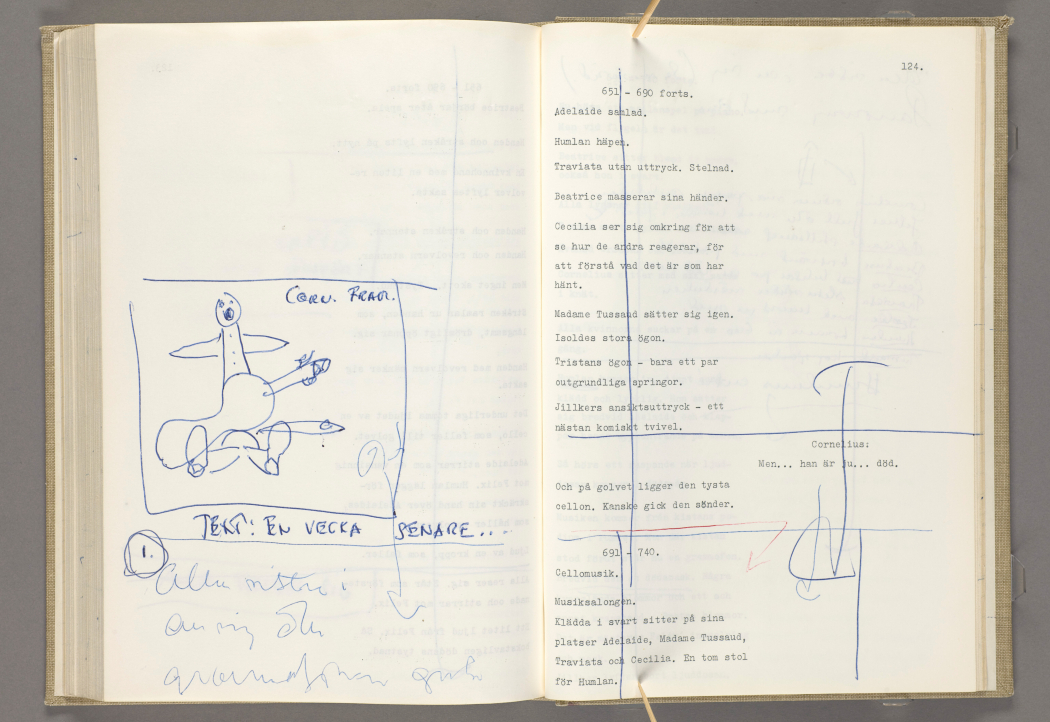 CORN. FRAM.
TEXT: EN VECKA SENARE...
1.
Alla
124.
651 - 690 forts.
Adelaide samlad.
Humlan häpen.
Traviata utan uttryck. Stelnad.
Beatrice masserar sina händer.
Cecilia ser sig omkring för att
se hur de andra reagerar, för
att förstå vad det är som har
hänt.
Madame Tussaud sätter sig igen.
Isoldes stora ögon.
Tristans ögon - bara ett par
outgrundliga springor.
Jillkers ansiktsuttryck - ett
nästan komiskt tvivel.
Cornelius:
Men... han är ju... död.
Och på golvet ligger den tysta
cellon. Kanske gick den sönder.
691 - 740.
Cellomusik.
Musiksalongen.
Klädda i svart sitter på sina
platser Adelaide, Madame Tussaud,
Traviata och Cecilia. En tom stol
för Humlan.